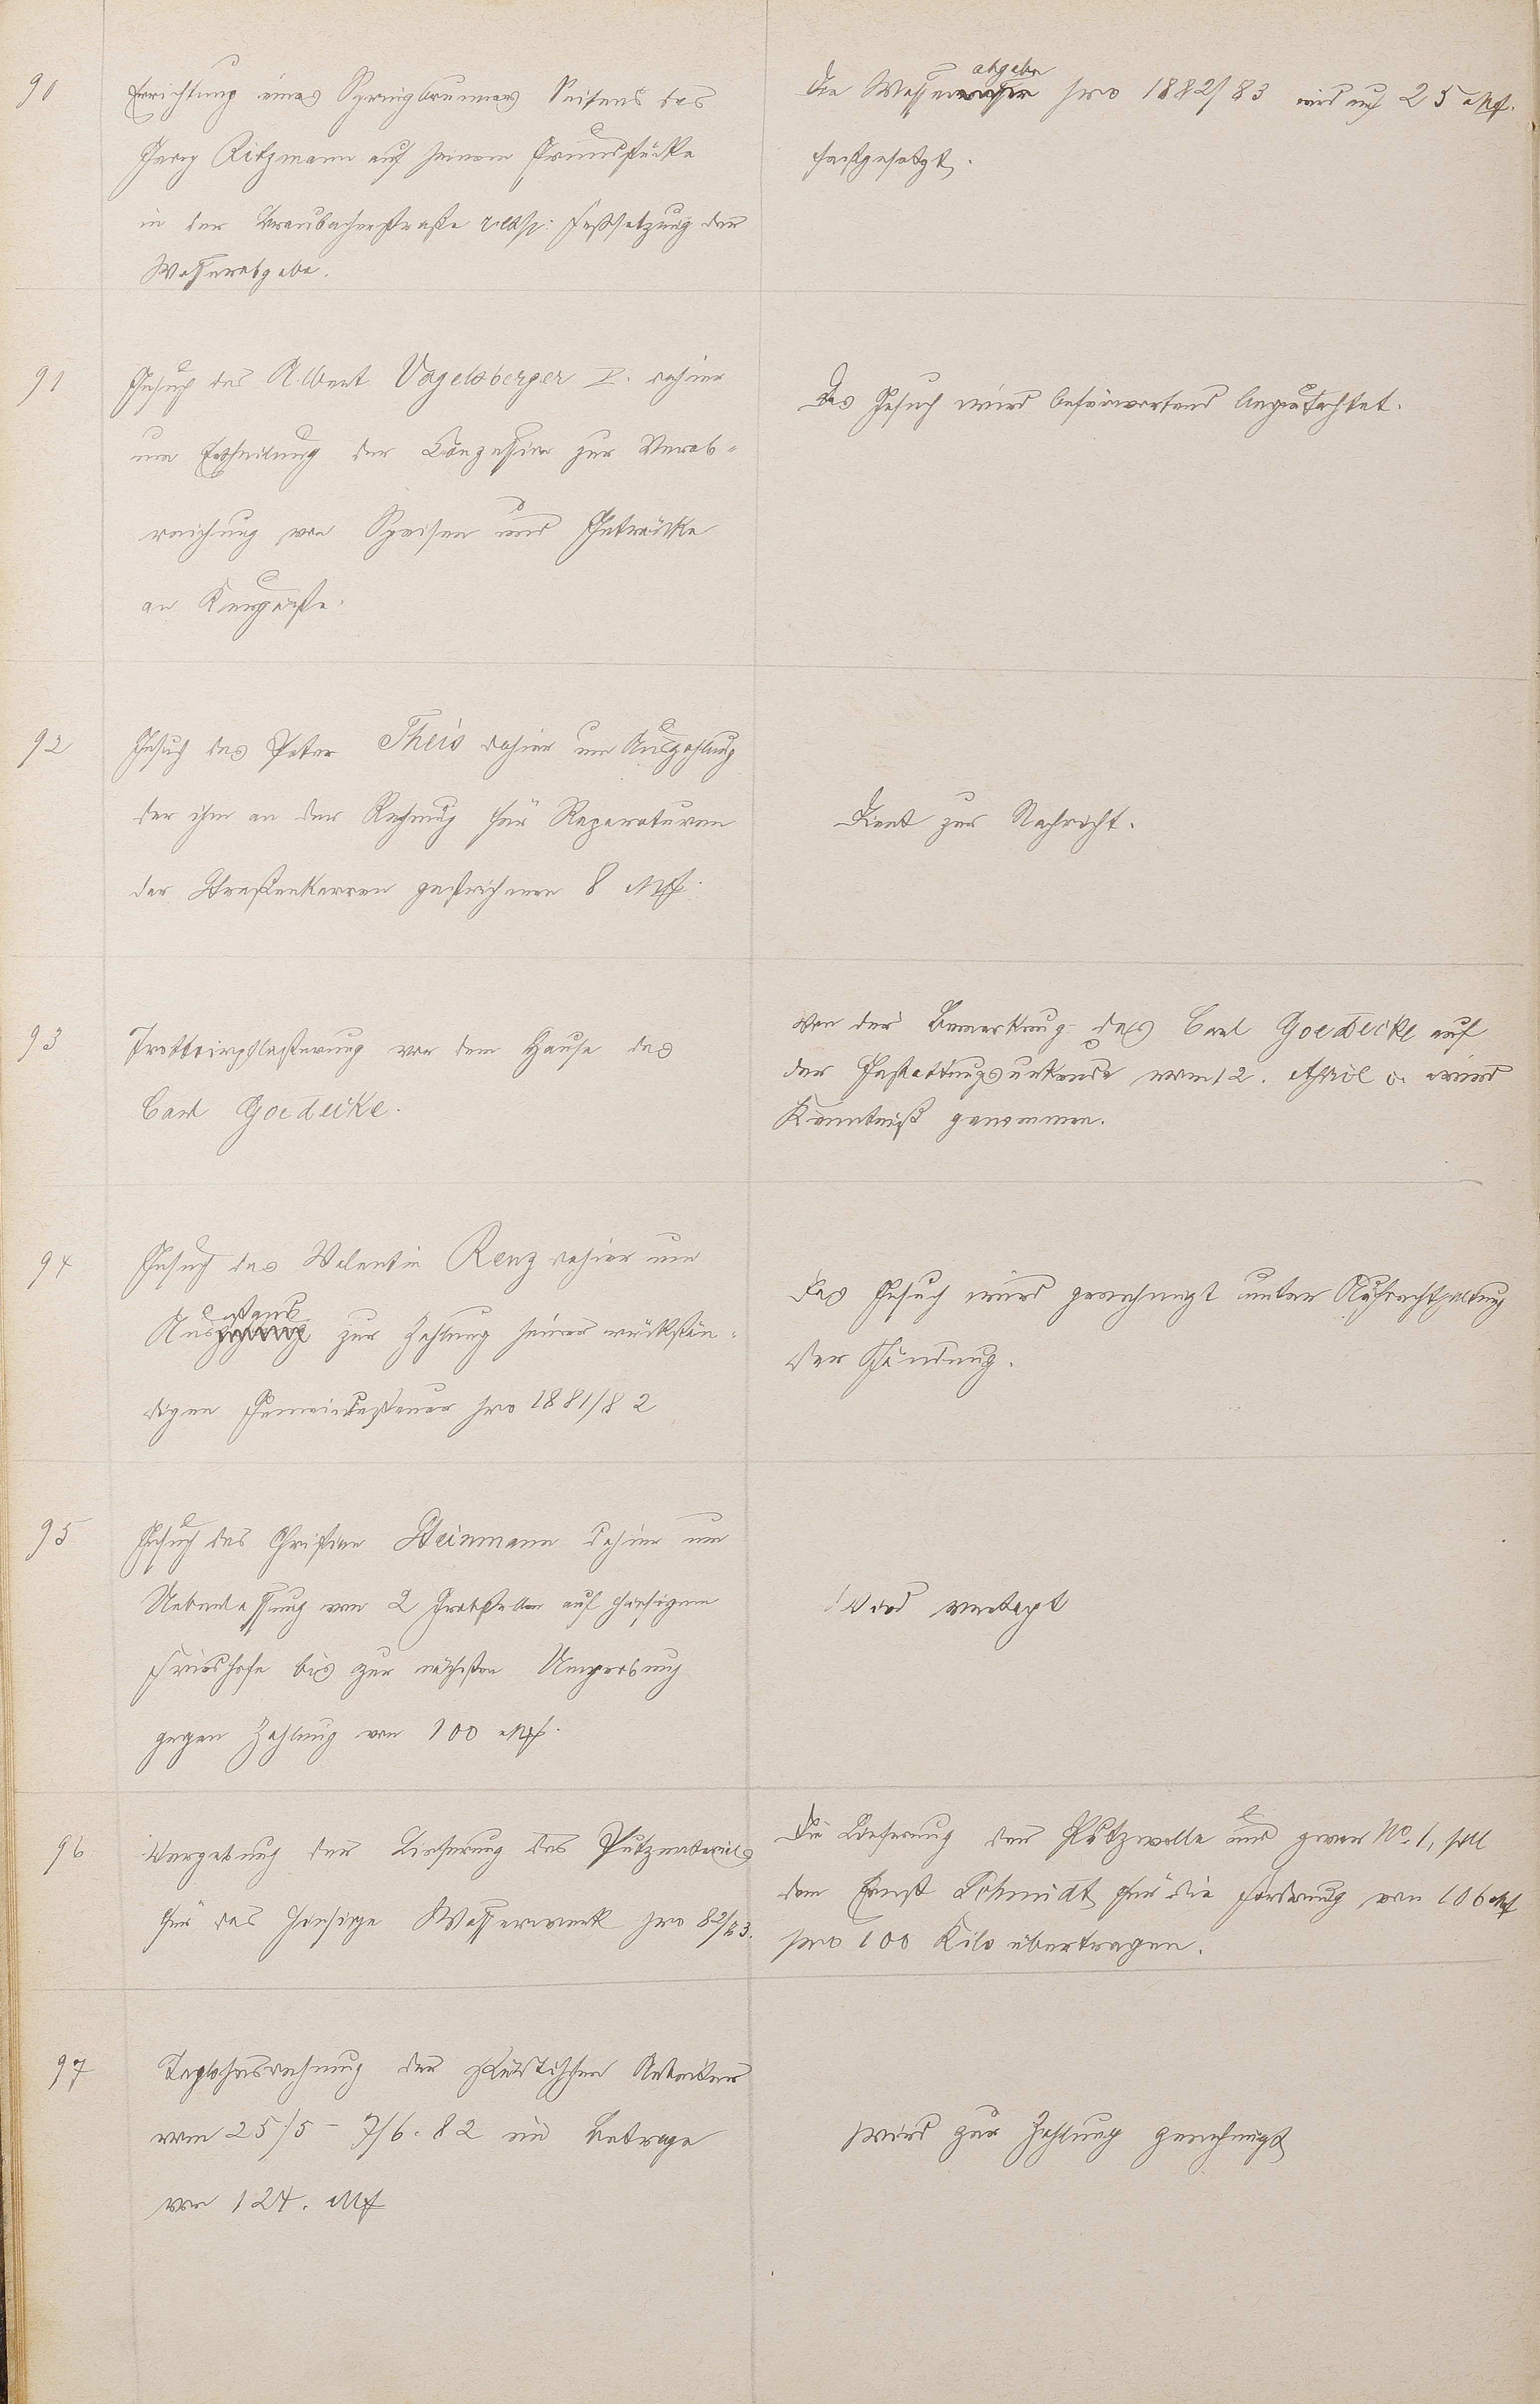 90
Errichtung eines Springbrunnens Seitens des
Georg Ritzmann auf seinem Grundstücke
in der Braubacherstraße resp: Festsetzung der
Wasserabgabe.
Die Wasserabgabe pro 1882/83 wird auf 25 Mk.
festgesetzt.
91
Gesuch des Albert Vogelsberger II. dahier
um Ertheilung der Conzession zur Verab-
reichung von Speisen und Getränke
an Kurgäste.
Das Gesuch wird befürwortend begutachtet.
92
Gesuch des Peter Theis dahier um Auszahlung
der ihm an der Rechnung für Reparaturen
der Straßenkarren gestrichenen 8 Mk.
Dient zur Nachricht.
93
Trottoirpflasterung vor dem Hause des
Carl Goedecke.
Von der Bemerkung des Carl Goedecke auf
der Gestattungsurkunde vom 12. April c. wird
Kenntniß genommen.
94
Gesuch des Valentin Renz dahier um
Ausstand zur Zahlung seiner rückstän-
digen Gemeindesteuer pro 1881/82
Das Gesuch wird genehmigt unter Aufrechthaltung
der Pfändung.
95
Gesuch des Christian Steinmann dahier um
Ueberlassung von 2 Grabstellen auf hiesigem
Friedhofe bis zur nächsten Umgrabung
gegen Zahlung von 100 Mk.
Wird vertagt
96
Vergebung der Lieferung des Putzmaterials
für das hiesige Wasserwerk pro 82/83.
Die Lieferung der Putzwolle und zwar No. 1, soll
dem Ernst Schmidt für die Forderung von 106 Mk
pro 100 Kilo übertragen.
97
Taglohnrechnung der städtischen Arbeiter
vom 25/5 - 7/6. 82 im Betrage
von 124. Mk
Wird zur Zahlung genehmigt